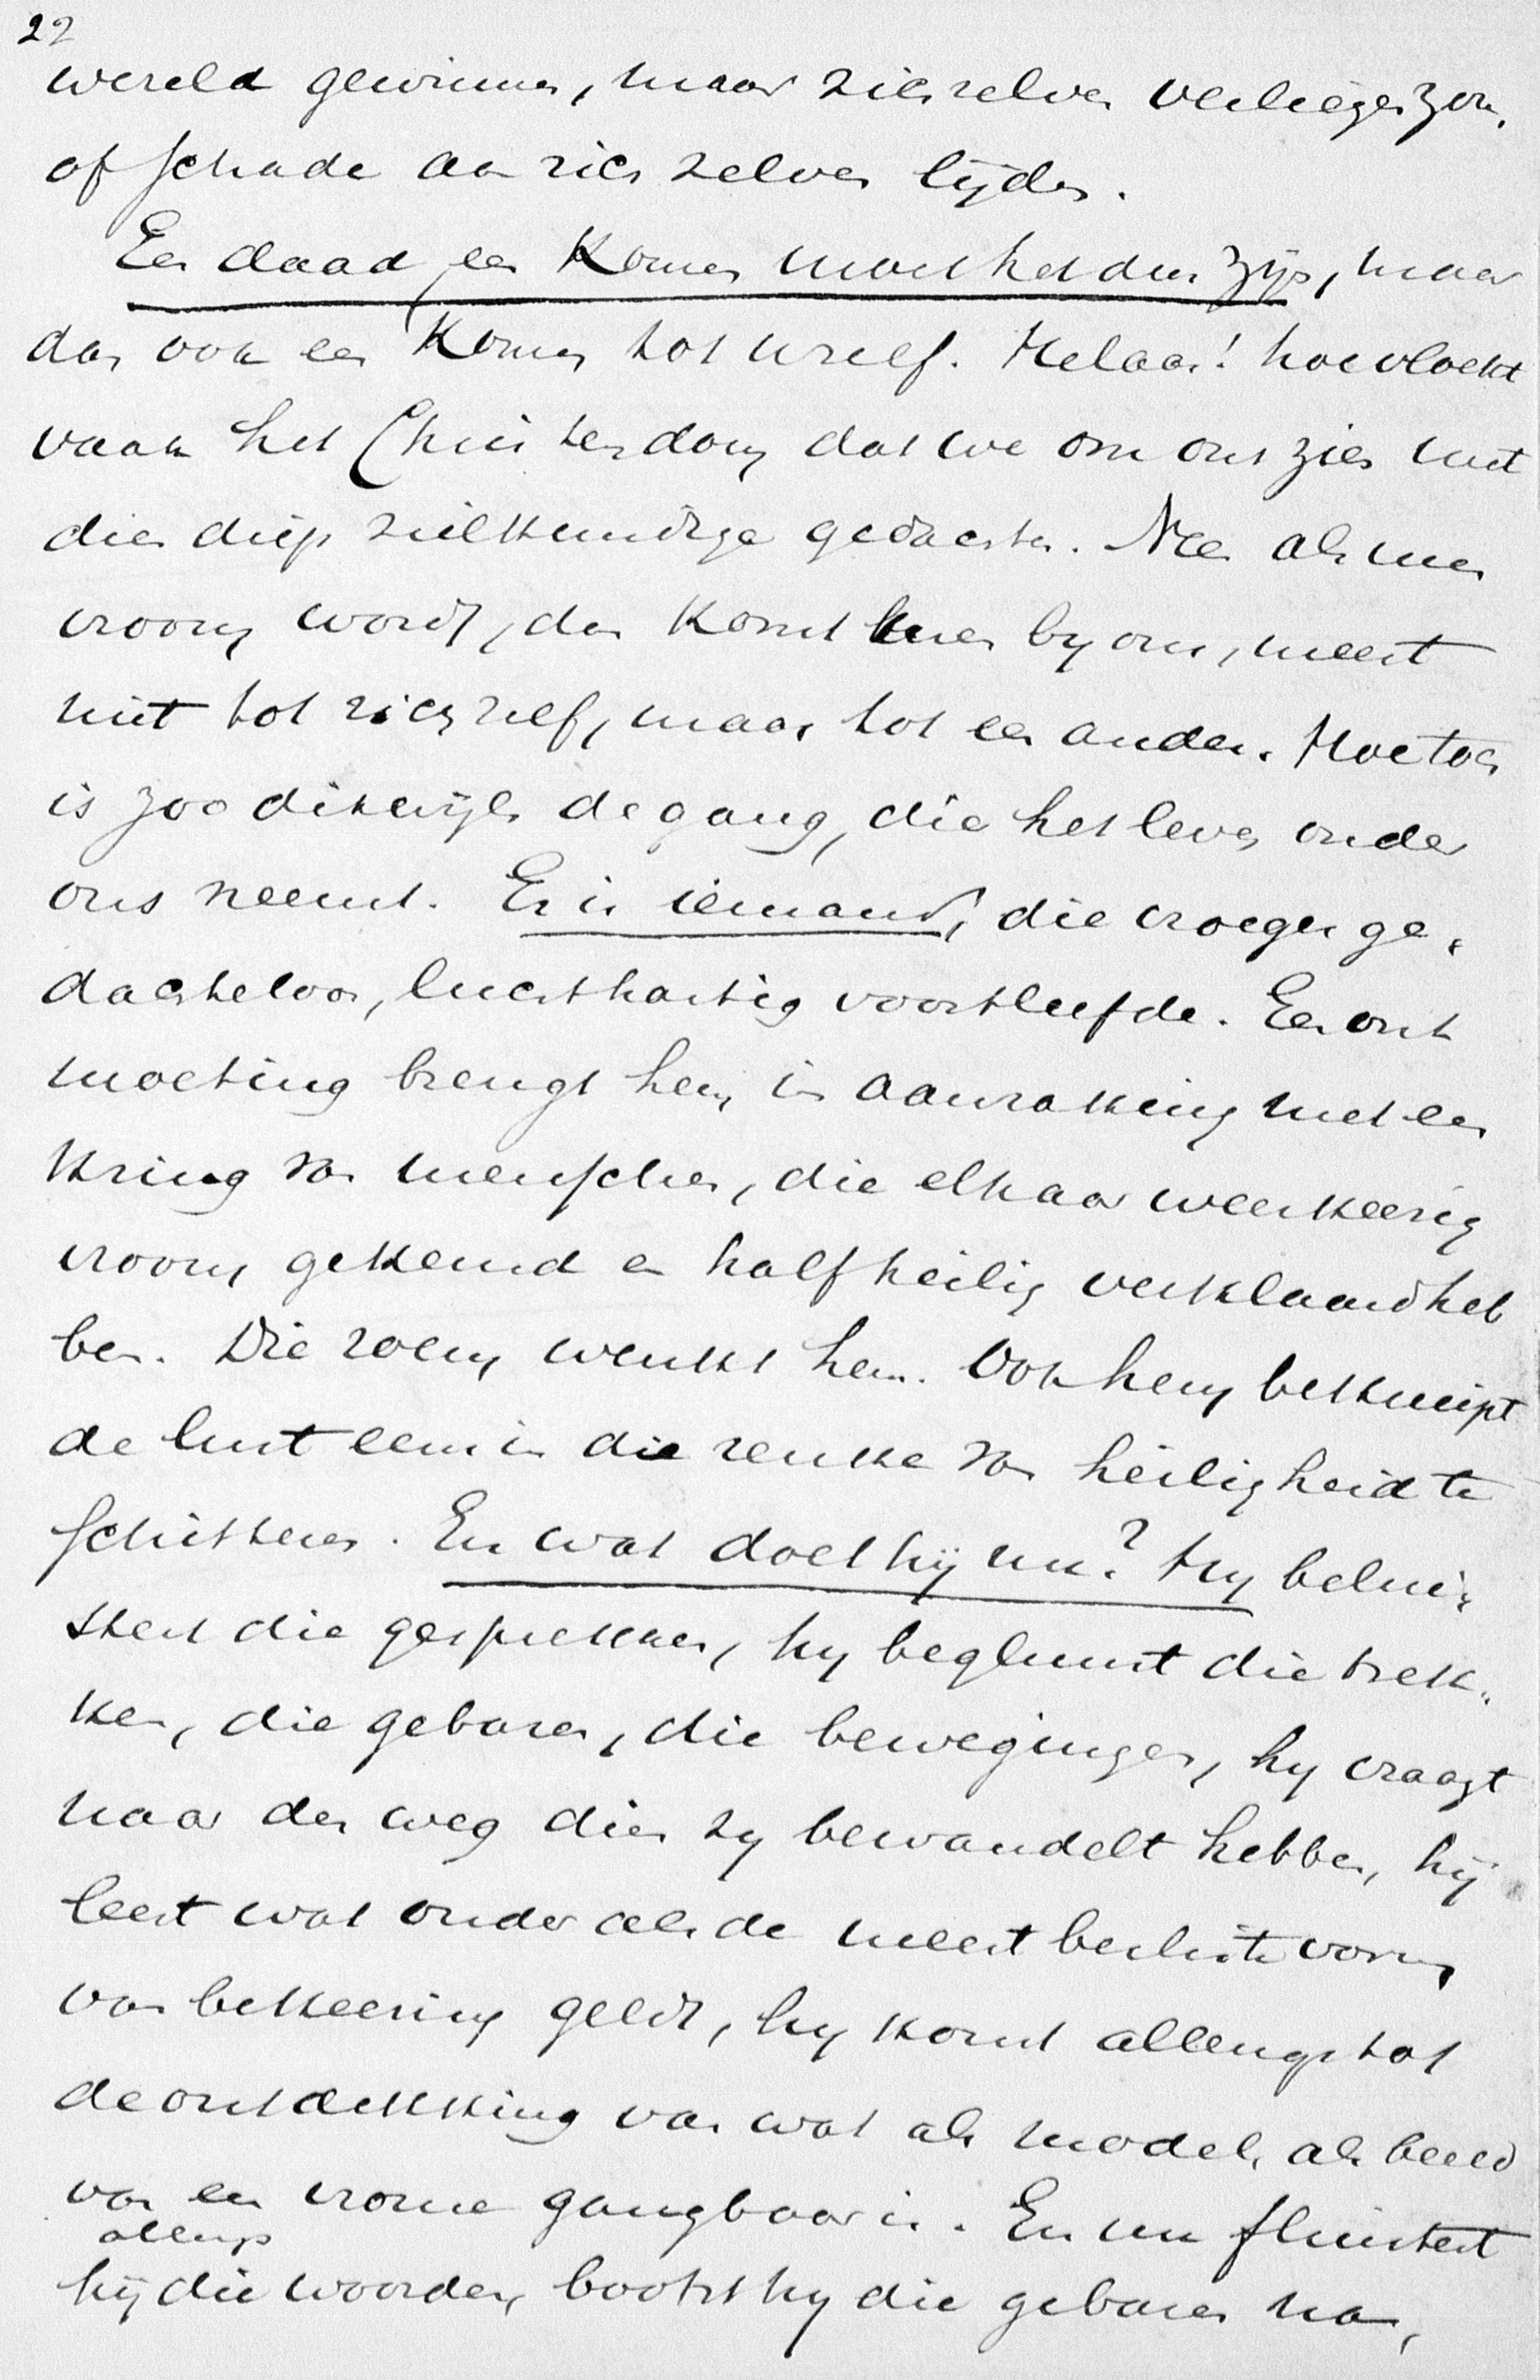 22
wereld gewinnen, maar zich zelven verliezen zou,
of schade aan zich zelven lijden.
Een daad, een komen moet het dus zijn, maar
dan ook een komen tot uzelf. Helaas! hoe vloekt
vaak het Christendom dat we om ons zien met
dien diep zielkundige gedachte. Nee als men
vroom wordt, dan komt men by ons, meest
niet tot zich zelf, maar tot een ander. Hoe toch
is zoo dikwijls de gang, die het leven onder
ons neemt. Er is iemand, die vroeger ge-
dachteloos, luchthartig voortleefde. Een ont
moeting brengt hem in aanraking met een
kring van menschen, die elkaar weerkeerig
vroom gekend en half heilig verklaard heb
ben. Die roem wenkt hem. Ook hem bekruipt
de lust eens in die reuke van heiligheid te
schitteren. En wat doet hij nu? Hy belui-
stert die gesprekken, hy begluurt die trek-
ken, die gebaren, die bewegingen, hy vraagt
naar den weg dien zy bewandelt hebben, hij
leert wat onder als de meest besliste vorm
van bekeering geldt, hy komt allengs tot
de ontdekking van wat als model, als beeld
van een vrome gangbaar is. En nu fluistert
allengs
hij die woorden, bootst hy die gebaren na,